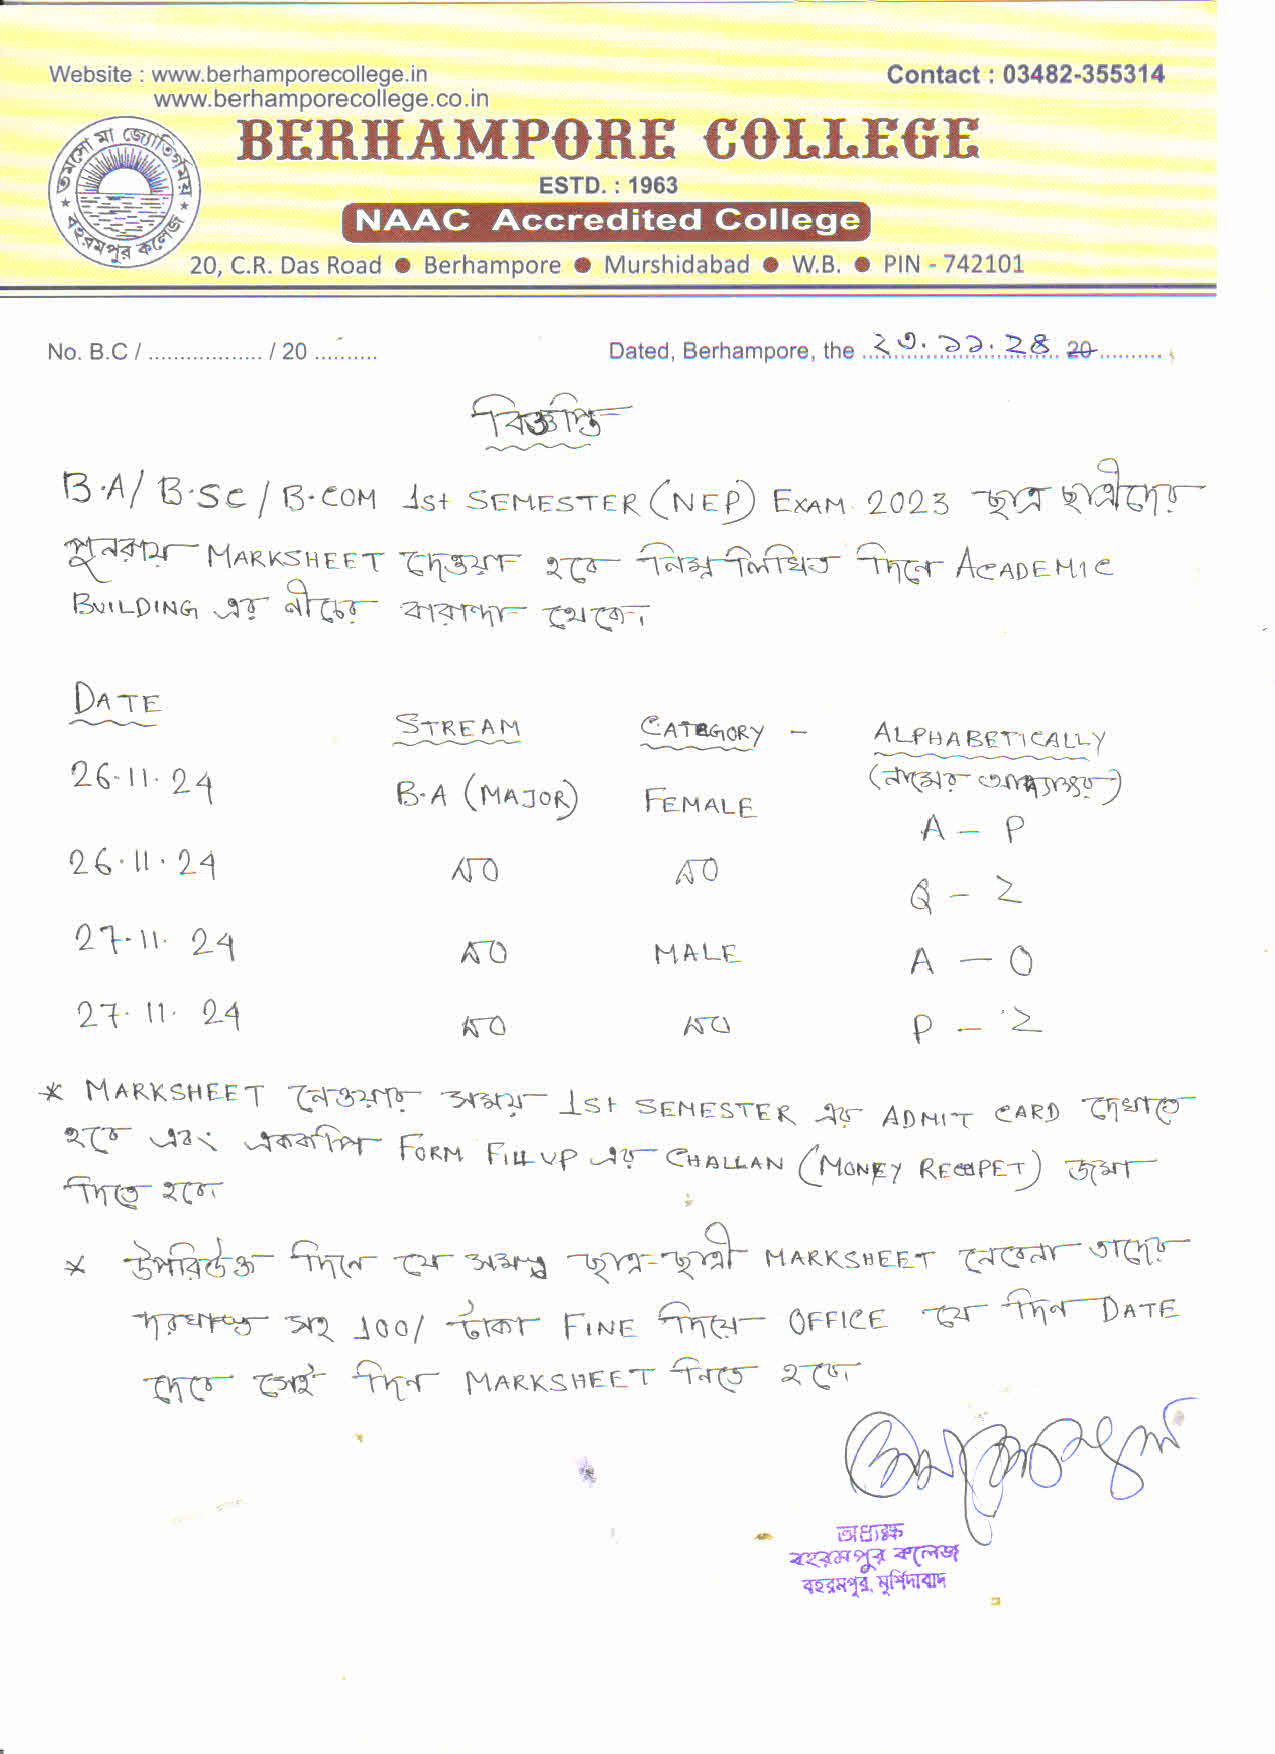 Website : www.berhamporecollege.in
Contact : 03482-355314
www.berhamporecollege.co.in
তমসো মা জ্যোতির্গময়
বহরমপুর কলেজ
BERHAMPORE COLLEGE
ESTD. : 1963
NAAC Accredited College
20, C.R. Das Road ● Berhampore ● Murshidabad ● W.B. ● PIN - 742101
No. B.C / .................. / 20 ..........
Dated, Berhampore, the ২৩.১১.২৪ 20..........
বিজ্ঞপ্তি
B.A/ B.SC / B.COM 1st SEMESTER (NEP) EXAM 2023 ছাত্র ছাত্রীদের
পুনরায় MARKSHEET দেওয়া হবে নিম্ন লিখিত দিনে ACADEMIC
BUILDING এর নীচের বারান্দা থেকে।
DATE STREAM CATEGORY - ALPHABETICALLY
(নামের আদ্যাক্ষর)
26.11.24 B.A (MAJOR) FEMALE A - P
26.11.24 DO DO Q - Z
27.11.24 DO MALE A - O
27.11.24 DO DO P - Z
* MARKSHEET নেওয়ার সময় 1st SEMESTER এর ADMIT CARD দেখাতে
হবে এবং এককপি FORM FILLUP এর CHALLAN (MONEY RECEIPET) জমা
দিতে হবে।
* উপরিউক্ত দিনে যে সমস্ত ছাত্র-ছাত্রী MARKSHEET নেবেনা তাদের
দরখাস্ত সহ 100/ টাকা FINE দিয়ে OFFICE যে দিন DATE
দেবে সেই দিন MARKSHEET নিতে হবে।
অধ্যক্ষ
বহরমপুর কলেজ
বহরমপুর, মুর্শিদাবাদ